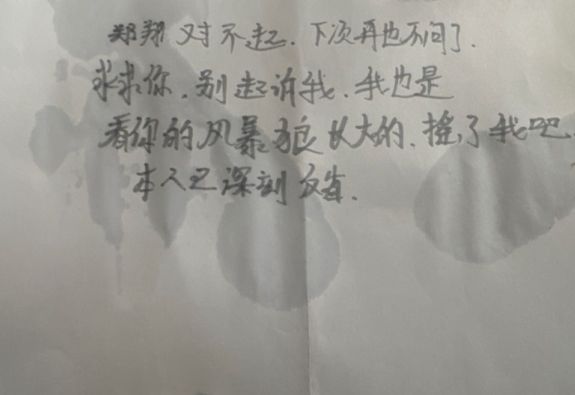 郑翔 对不起. 下次再也不问了.
求求你. 别起诉我. 我也是
看你的风暴狼长大的. 摇了我吧.
本人已深刻反省.